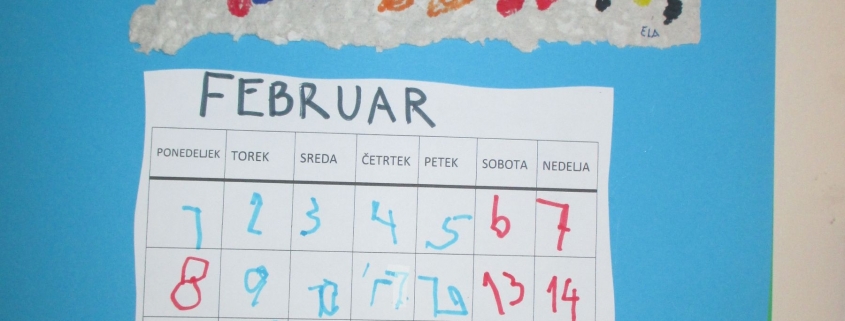 ELA
FEBRUAR
PONEDELJEK TOREK SREDA ČETRTEK PETEK SOBOTA NEDELJA
1 2 3 4 5 6 7
8 9 13 14